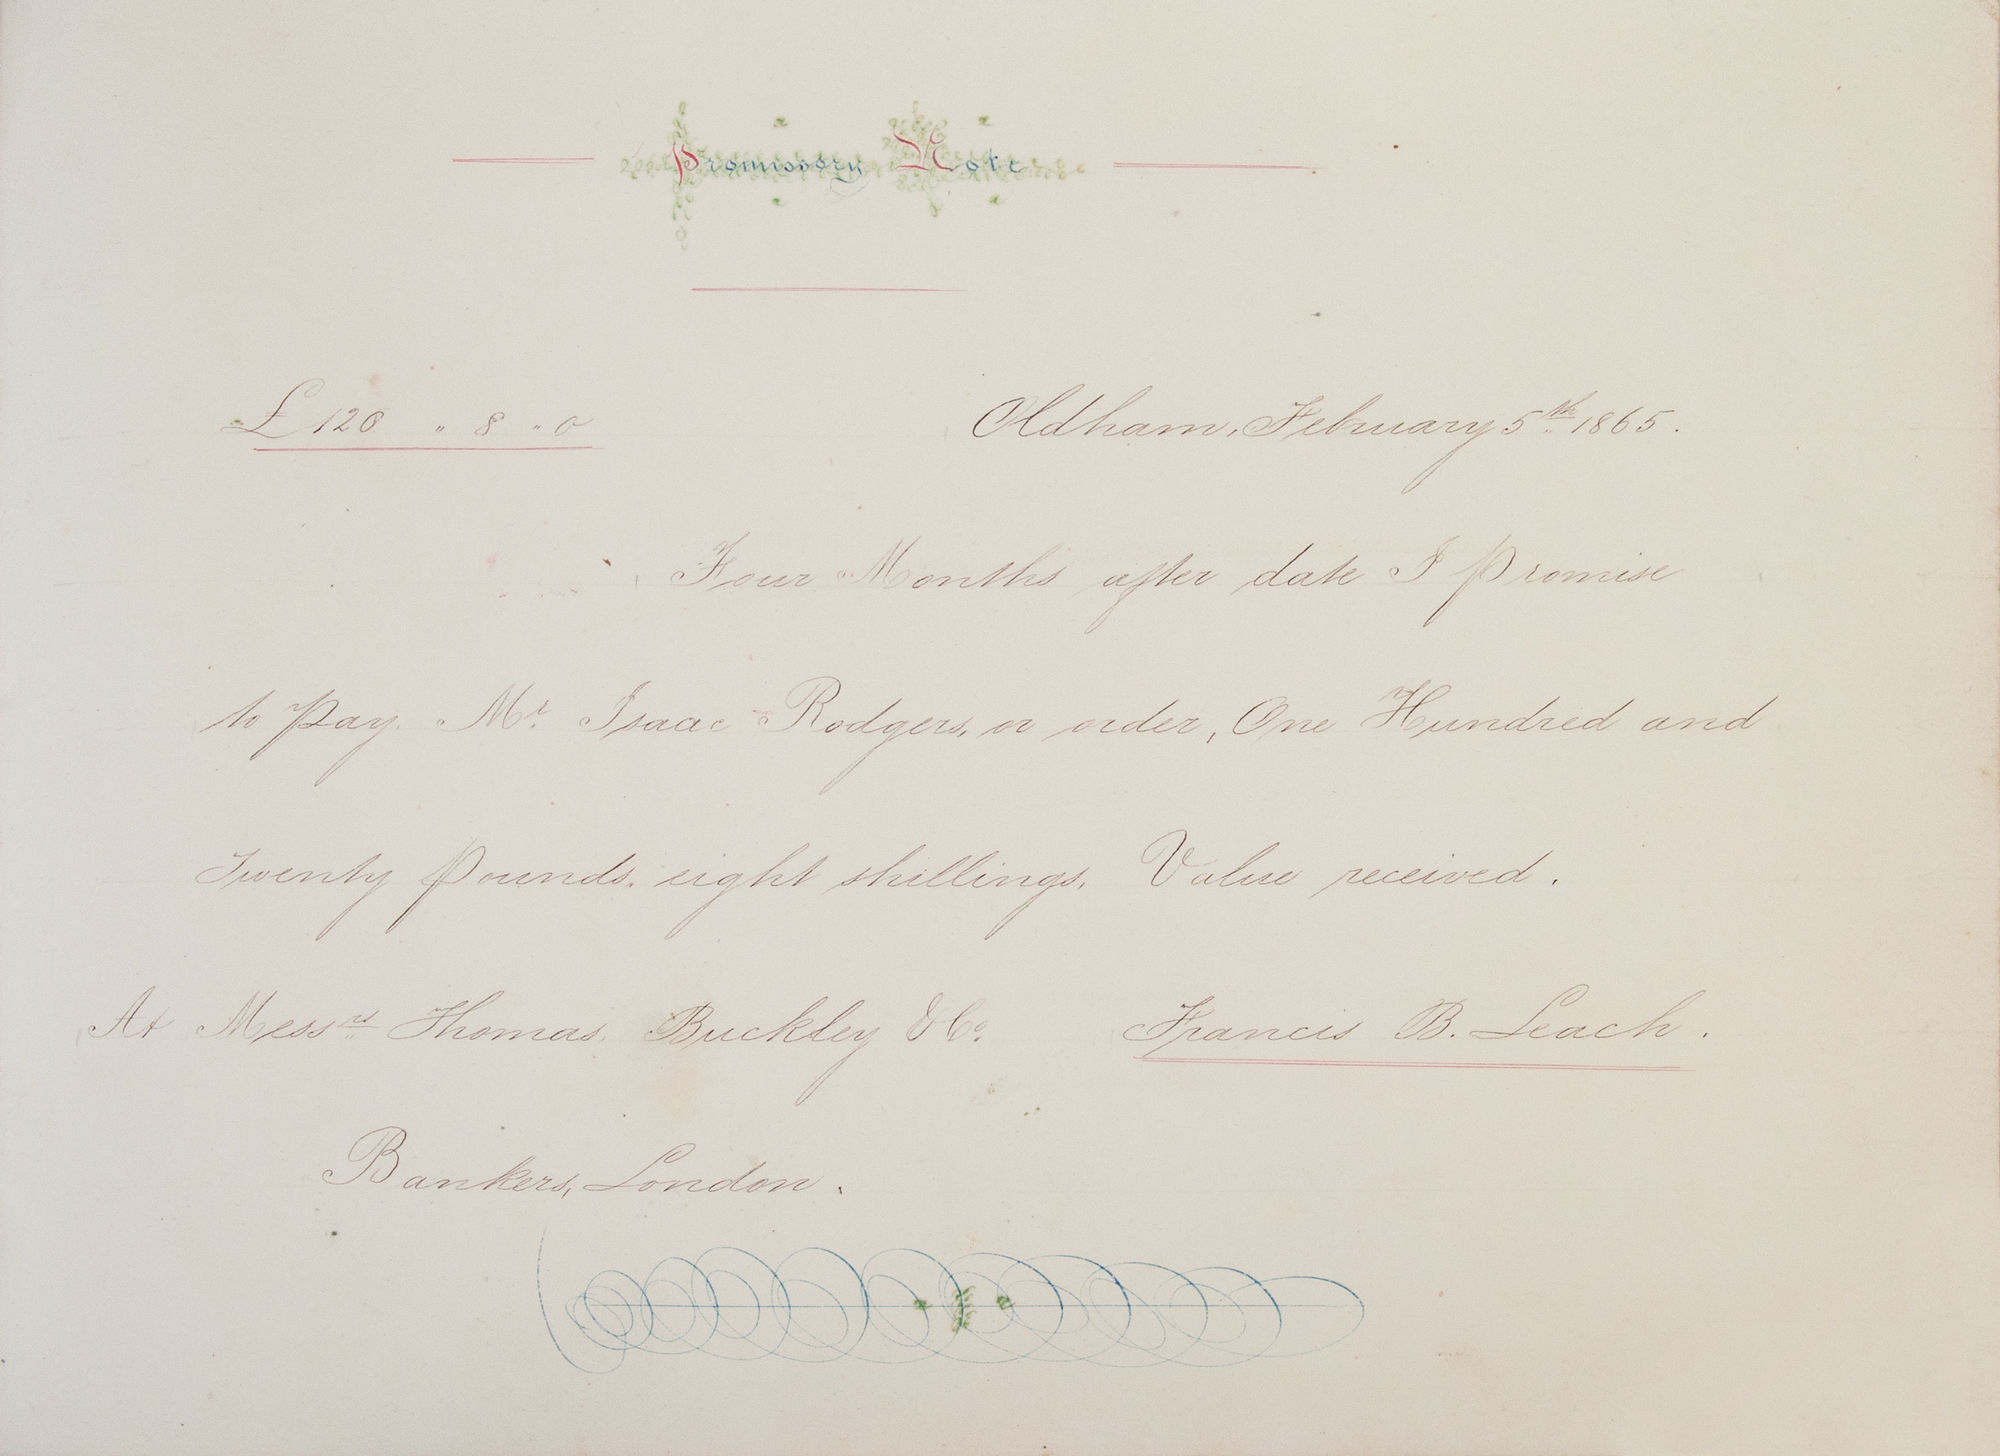 Promissory Note
£120 " 8 " 0
Oldham, February 5th 1865.
Four Months after date I Promise
to Pay. Mr. Isaac Rodgers, or order, One Hundred and
Twenty Pounds. eight shillings. Value received.
At Messrs Thomas. Buckley & Co.
Francis B. Leach.
Bankers, London.